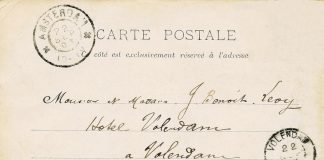 AMSTERDAM
CARTE POSTALE
côté est exclusivement réservé à l'adresse
Monsieur & Madame J. Benoit-Levy
Hotel Volendam
VOLENDAM
22
a Volendam